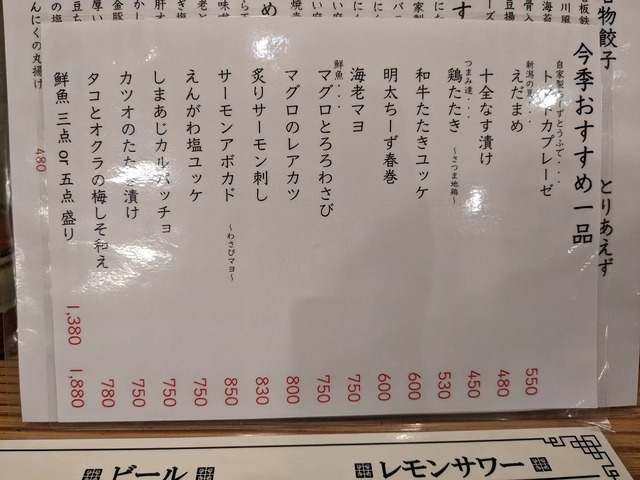 名物餃子
とりあえず
今季おすすめ一品
自家製ちーずとうふで・・・
トマトカプレーゼ 550
新潟の
えだまめ 480
十全なす漬け 450
つまみ達・・・
鶏たたき ～さつま地鶏～ 530
和牛たたきユッケ 600
明太ちーず春巻 600
海老マヨ 750
鮮魚・・・
マグロとろろわさび 750
マグロのレアカツ 800
炙りサーモン刺し 830
サーモンアボカド ～わさびマヨ～ 850
えんがわ塩ユッケ 750
しまあじカルパッチョ 750
カツオのたたき漬け 750
タコとオクラの梅しそ和え 780
鮮魚 三点 or 五点 盛り 1,380 1,880
にんにくの丸揚げ 480
ビール
レモンサワー